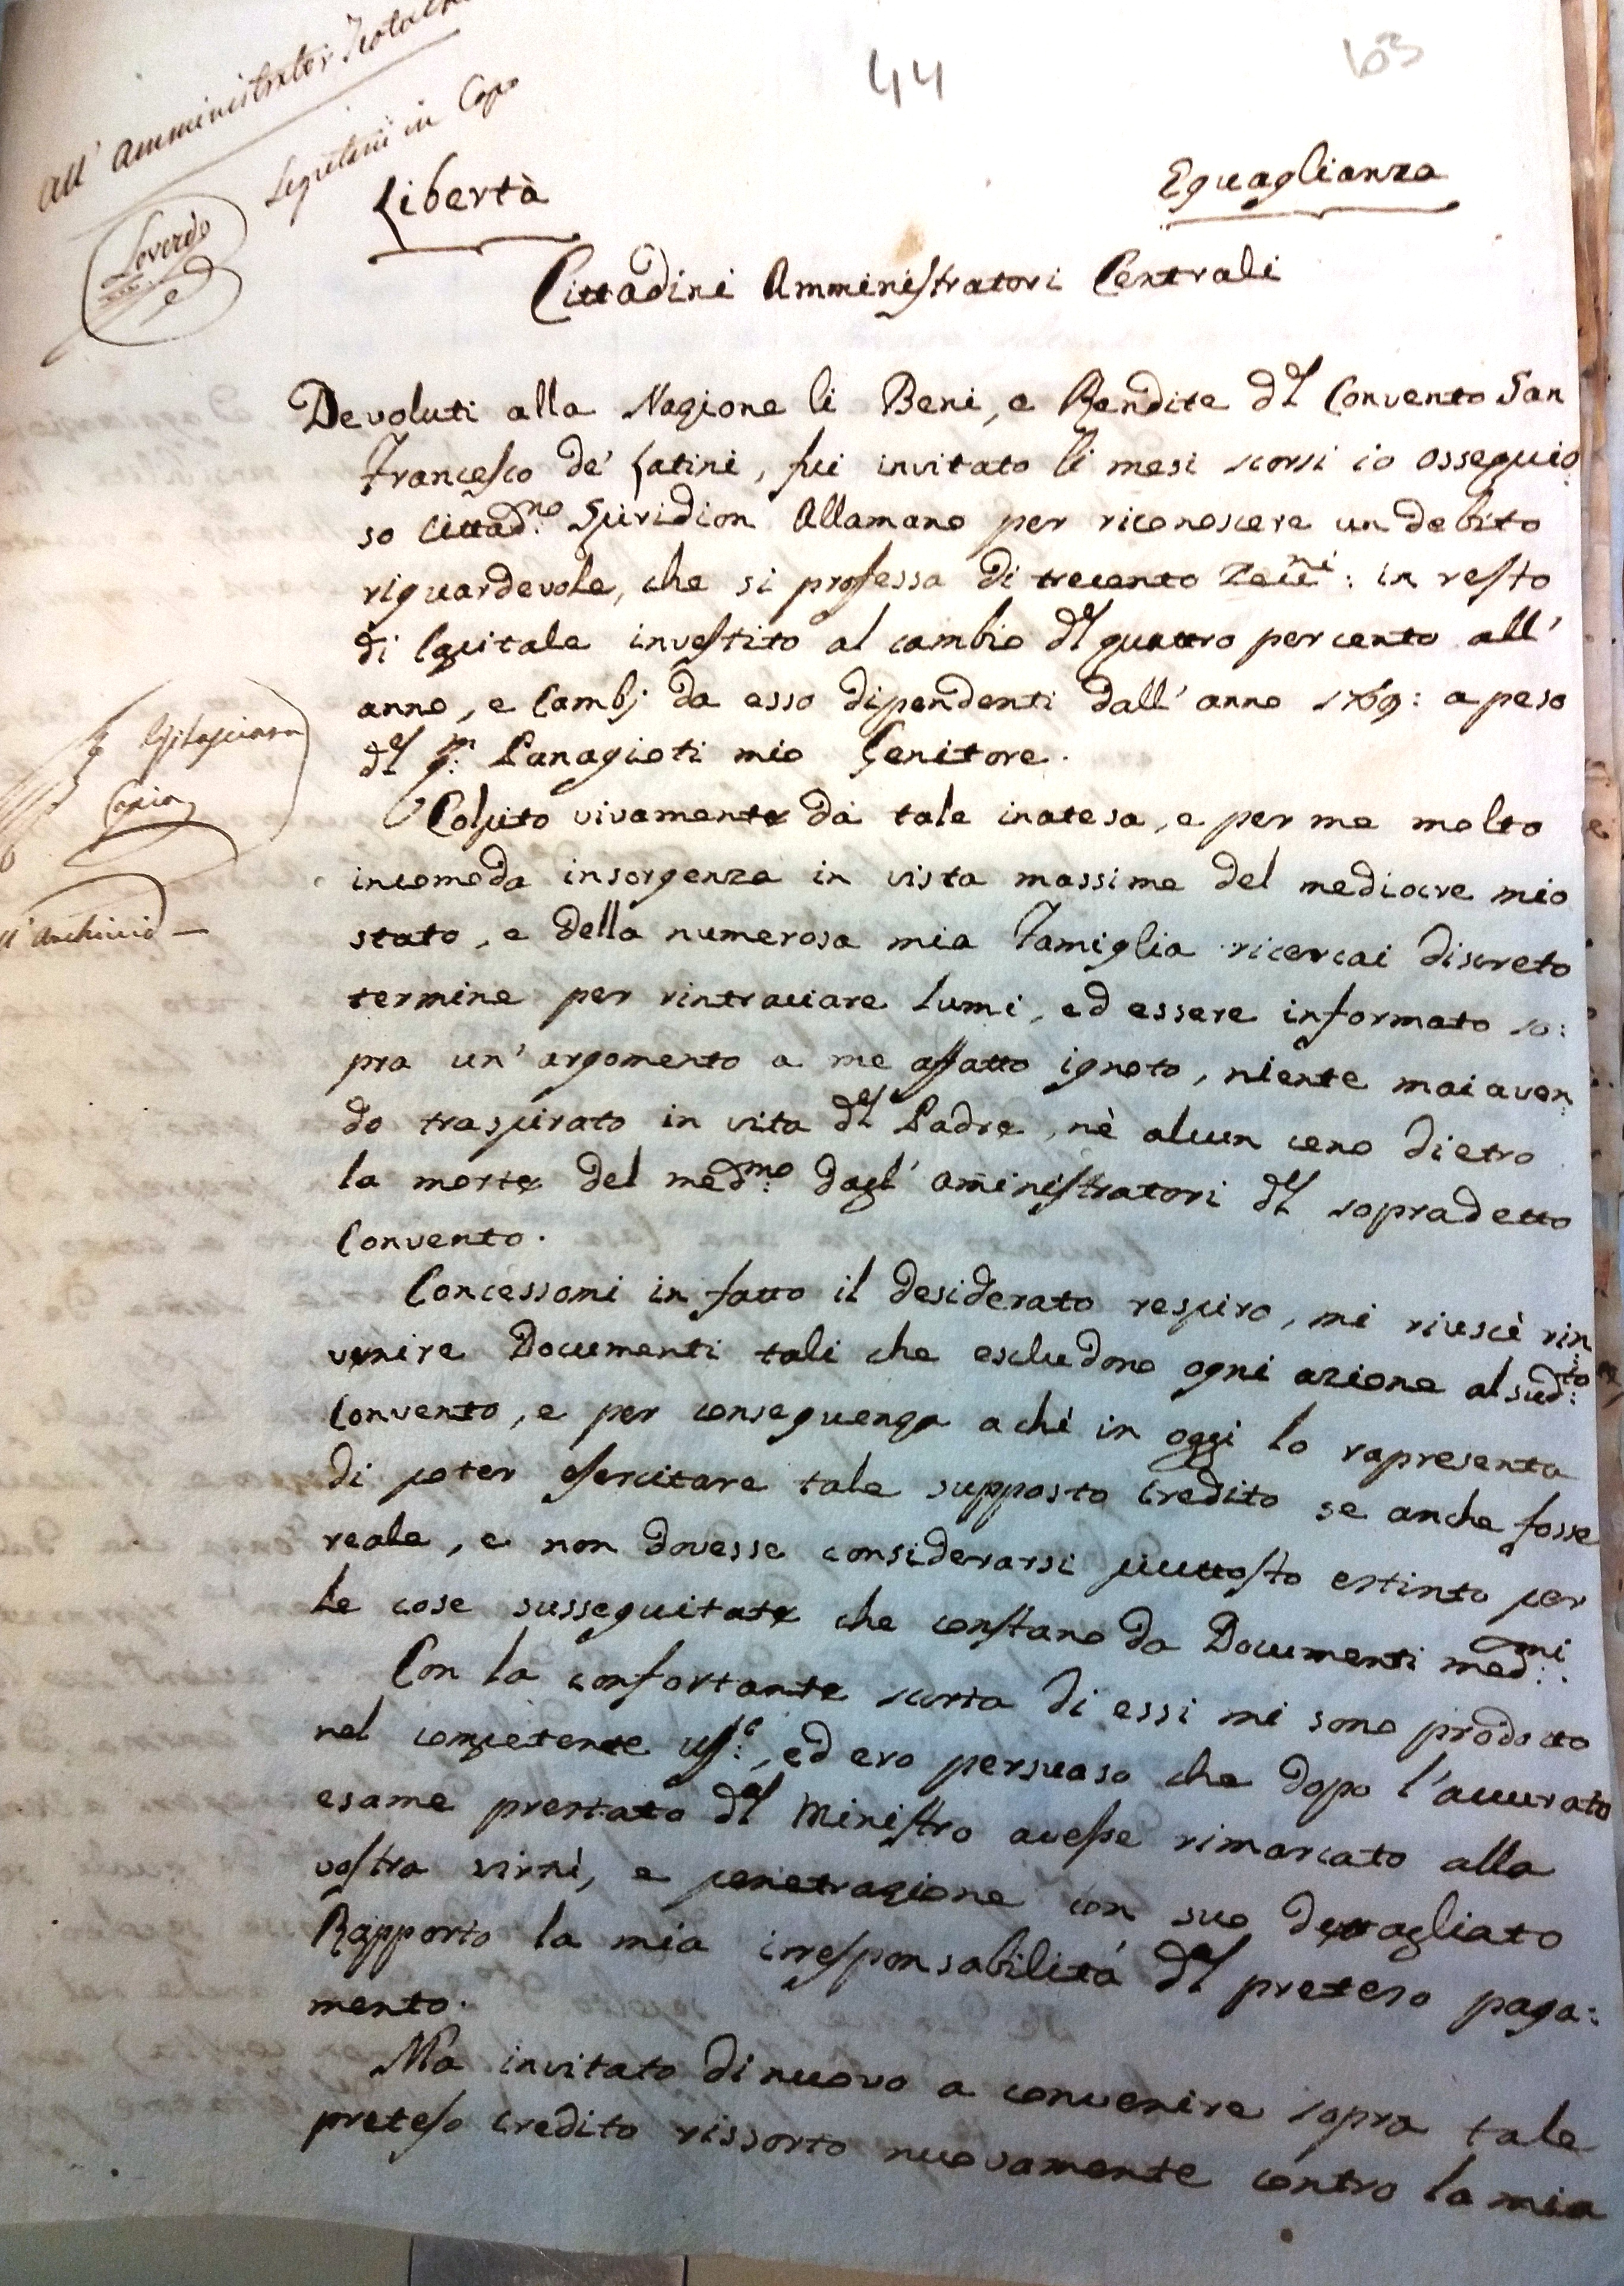 44
103
All' Amministrator
Segretario in Capo
Loverdo
Libertà
Eguaglianza
Cittadini Amministratori Centrali
Devoluti alla Nazione li Beni, e Rendite del Convento San
Francesco de' Latini, fui invitato li mesi scorsi io ossequio:
so Cittad:no Spiridion Allamano per riconoscere un debito
riguardevole, che si professa di trecento Zecc:ni: in resto
di Capitale investito al cambio del quattro per cento all'
anno, e Cambj da esso dipendenti dall' anno 1769: a peso
del q:m Panagioti mio Genitore.
Colpito vivamente da tale inatesa, e per me molto
incomoda insorgenza in vista massime del mediocre mio
stato, e della numerosa mia Famiglia ricercai discreto
termine per rintracciare lumi, ed essere informato so:
pra un' argomento a me affatto ignoto, niente mai aven:
do traspirato in vita del Padre, nè alcun ceno dietro
la morte del med:mo dagl' aministratori del sopradetto
Convento.
Concessomi in fatto il desiderato respiro, mi riuscì rin:
venire Documenti tali che escludono ogni azione al sud:to
Convento, e per conseguenza a chi in oggi lo rapresenta
di poter esercitare tale supposto credito se anche fosse
reale, e non dovesse considerarsi piuttosto estinto per
le cose susseguitate che constano da Documenti med:mi.
Con la confortante scorta di essi mi sono prodotto
nel competente uff:o, ed ero persuaso che dopo l'accurato
esame prestato del Ministro avesse rimarcato alla
vostra virtù, e penetrazione con suo dettagliato
Rapporto la mia irresponsabilità del preteso paga:
mento.
Ma invitato di nuovo a convenire sopra tale
preteso credito rissorto nuovamente contro la mia
Copia
all' Archivio